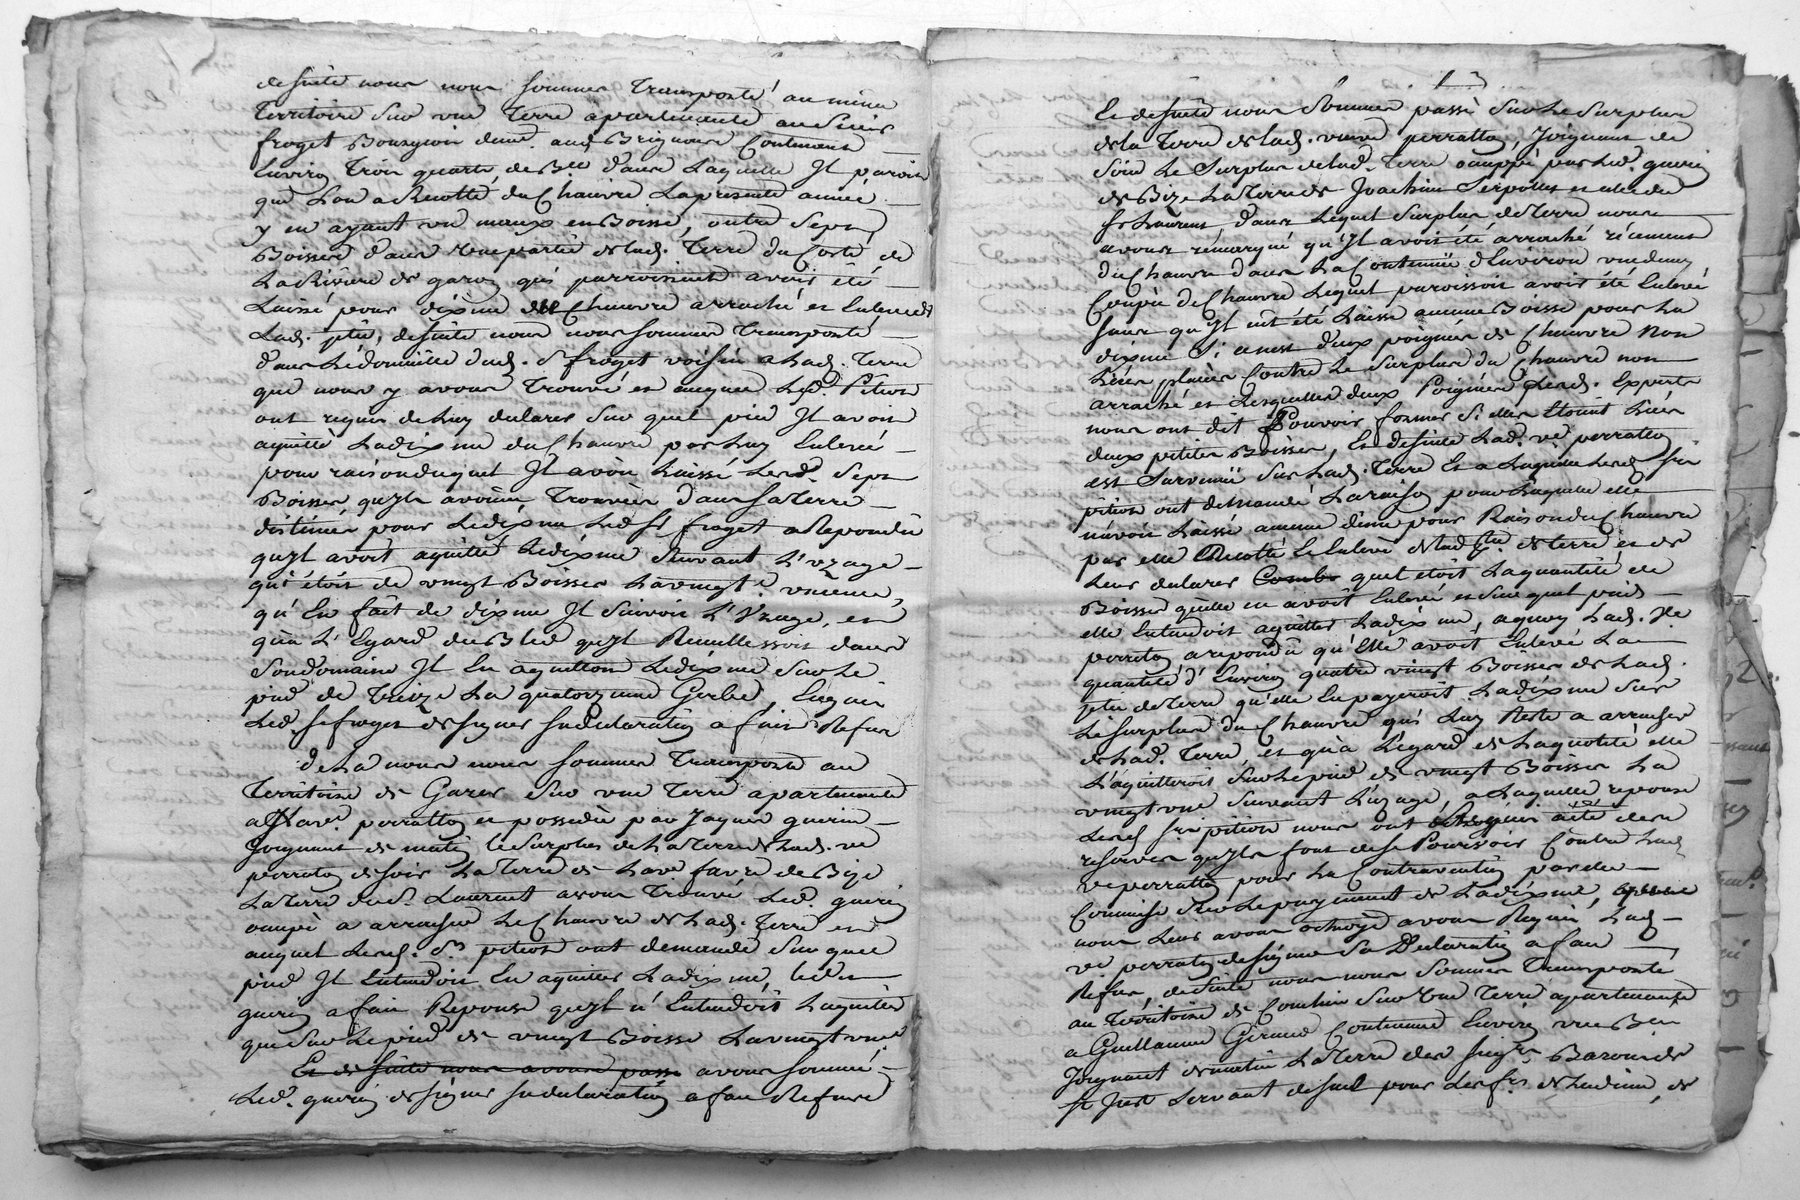 de suitte nous nous sommes Transporté au même
Territoire Sur une Terre apartenante au Sieur
froget Bourgeois dem.t aud Brignais Contenant
Environ Trois quarts de B.ée dans Laquelle Il paroit
que Lon a Recolté du Chanvre La presente année
y en ayant un en Boisse, outre Sept
Boisses dans une partie de lad. Terre du Costé de
La Riviere de garon qui parroissent avoir été
Laissé pour dixme du Chanvre arraché et Enlevé de
Lad. ptie, de suitte nous nous sommes Transporté
dans Le domicille dud. S.r froget voisin a Lad. Terre
que nous y avons Trouvé et auquel Lesd. Pition
ont requis de Luy declarer Sur quel pied Il avoit
aquitté La dixme du Chanvre par Luy Enlevé
pour raison duquel Il avoit Laissé Lesd. Sept
Boisses qu'Ils avoient Trouvées dans sa Terre
destinées pour La dixme Led S.r froget a Repondu
qu'Il avoit aquitté La dixme Suivant L'uzage
qui étoit de vingt Boisses La vingt unieme,
qu'En fait de dixme Il Suivoit L'Uzage, et
qu'a L'Egard du Bled qu'Il Recuillissoit dans
Son domaine Il En aquittoit La dixme Sur Le
pied de Treize La quatorzieme Gerbe, Enquis
Led. S.r froget de signer Sa declaration a fait Refus
De La nous nous sommes Transporté au
Territoire de Garel Sur une Terre apartenante
a La ve. perratton et possedée par Jaques guerin
Joignant de matin Le Surplus de La Terre de Lad. ve
perraton de soir La Terre de La ve favre de Bize
La Terre du S. Laurent avons Trouvé Led. guerin
occupé a arracher Le Chanvre de Lad. Terre et
auquel Lesd. S.rs pition ont demandé Sur quel
pied Il Entendoit En aquitter La dixme, Led.
guerin a fait Reponse qu'Il n'Entendoit L'aquitter
que Sur Le pied de vingt Boisse La vingt une
Et de suitte nous avons passé avons sommé
Led. guerin de signer sa declaration a fait Refus
Et de suitte nous Sommes passé Sur Le Surplus
de la Terre de lad. veuve perratton, Joignant de
Soir Le Surplus de lad. Terre occuppé par Led. guerin
de Bize La Terre de Joachim et celle du
S.r Laurens, dans Lequel Surplus de Terre nous
avons remarqué qu'Il avoit été arraché récement
du Chanvre dans La Contenüe d'Environ une demy
Coupée de Chanvre Lequel paroissoit avoir été Enlevé
sans qu'Il eût été Laissé aucune Boisse pour La
dixme Si ce n'est deux poignées de Chanvre Non
Liées placées Contre Le Surplus du Chanvre non
arraché et Lesquelles deux Poignées Lesd. Experts
nous ont dit Pouvoir former Si elles Etoient Liées
deux petites Boisses, Et de suitte Lad. ve perratton
est Survenüe Sur Lad. Terre Et a Laquelle Lesd S.rs
pition ont demandé La raison pour Laquelle elle
n'avoit Laissé aucune dime pour Raison du Chanvre
par elle Recolté Et Enlevé de lad p.tie de terre et de
Leur declarer Combien quel etoit La quantité de
Boisses qu'elle en avoit Enlevé et Sur quel pied
elle Entendoit aquitter La dixme, a quoy Lad. ve
perraton a repondu qu'Elle avoit Enlevé La
quantité d'Environ quatre vingt Boisses de Lad.
ptie de Terre qu'elle En payeroit La dixme Sur
Le Surplus du Chanvre qui Luy Reste a arracher
de Lad. Terre, et qu'a L'égard de La quotité elle
L'aquitteroit Sur Le pied de vingt Boisses La
vingt une Suivant L'uzage, a Laquelle reponse
Lesd S.rs pition nous ont Requis acte des
reserves qu'Ils font de se Pourvoir Contre Lad
ve perratton pour La Contravention par elle
Commise Sur Le payement de La dixme,
nous Leur avons octroyé avons Requis Lad
ve perraton de signer Sa Declaration a fait
Refus, de suitte nous nous Sommes Transporté
au Territoire de Comhin Sur une Terre apartenante
a Guillaume Giraud Contenant Environ une B.ée
Joignant de matin La Terre des Seig.rs Barons de
St Just Servant de Sud pour Les fins de La dime, de